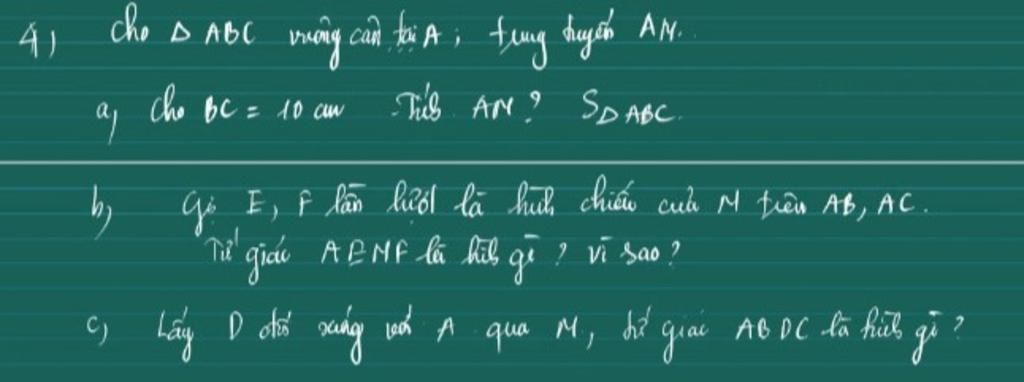 4) Cho Δ ABC vuông cân tại A; trung tuyến AM.
a, Cho BC = 10 cm Tính AM? SΔABC.
b, Gọi E, F lần lượt là hình chiếu của M trên AB, AC.
Tứ giác AEMF là hình gì? vì sao?
c, Lấy D đối xứng với A qua M, tứ giác ABDC là hình gì?